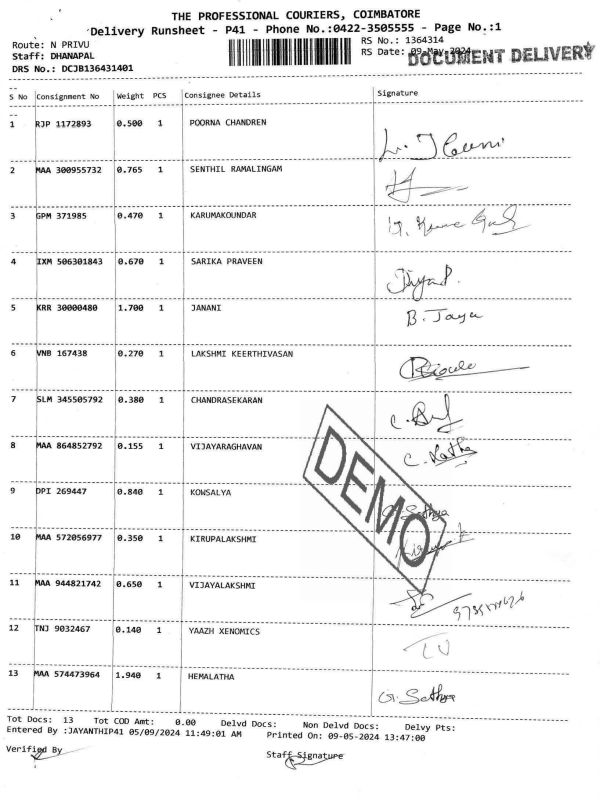 THE PROFESSIONAL COURIERS, COIMBATORE
Delivery Runsheet - P41 - Phone No.:0422-3505555 - Page No.:1
Route: N PRIVU
RS No.: 1364314
Staff: DHANAPAL
RS Date: 09-May-2024
DOCUMENT DELIVERY
DRS No.: DCJB136431401
S No Consignment No Weight PCS Consignee Details Signature
1 RJP 1172893 0.500 1 POORNA CHANDREN
2 MAA 300955732 0.765 1 SENTHIL RAMALINGAM
3 GPM 371985 0.470 1 KARUMAKOUNDAR
4 IXM 506301843 0.670 1 SARIKA PRAVEEN
5 KRR 30000480 1.700 1 JANANI B. Jaya
6 VNB 167438 0.270 1 LAKSHMI KEERTHIVASAN
7 SLM 345505792 0.380 1 CHANDRASEKARAN
8 MAA 864852792 0.155 1 VIJAYARAGHAVAN C. Latha
9 DPI 269447 0.840 1 KOWSALYA G. Sathya
10 MAA 572056977 0.350 1 KIRUPALAKSHMI
11 MAA 944821742 0.650 1 VIJAYALAKSHMI
12 TNJ 9032467 0.140 1 YAAZH XENOMICS
13 MAA 574473964 1.940 1 HEMALATHA G. Sathya
DEMO
Tot Docs: 13 Tot COD Amt: 0.00 Delvd Docs: Non Delvd Docs: Delvy Pts:
Entered By :JAYANTHIP41 05/09/2024 11:49:01 AM Printed On: 09-05-2024 13:47:00
Verified By Staff Signature